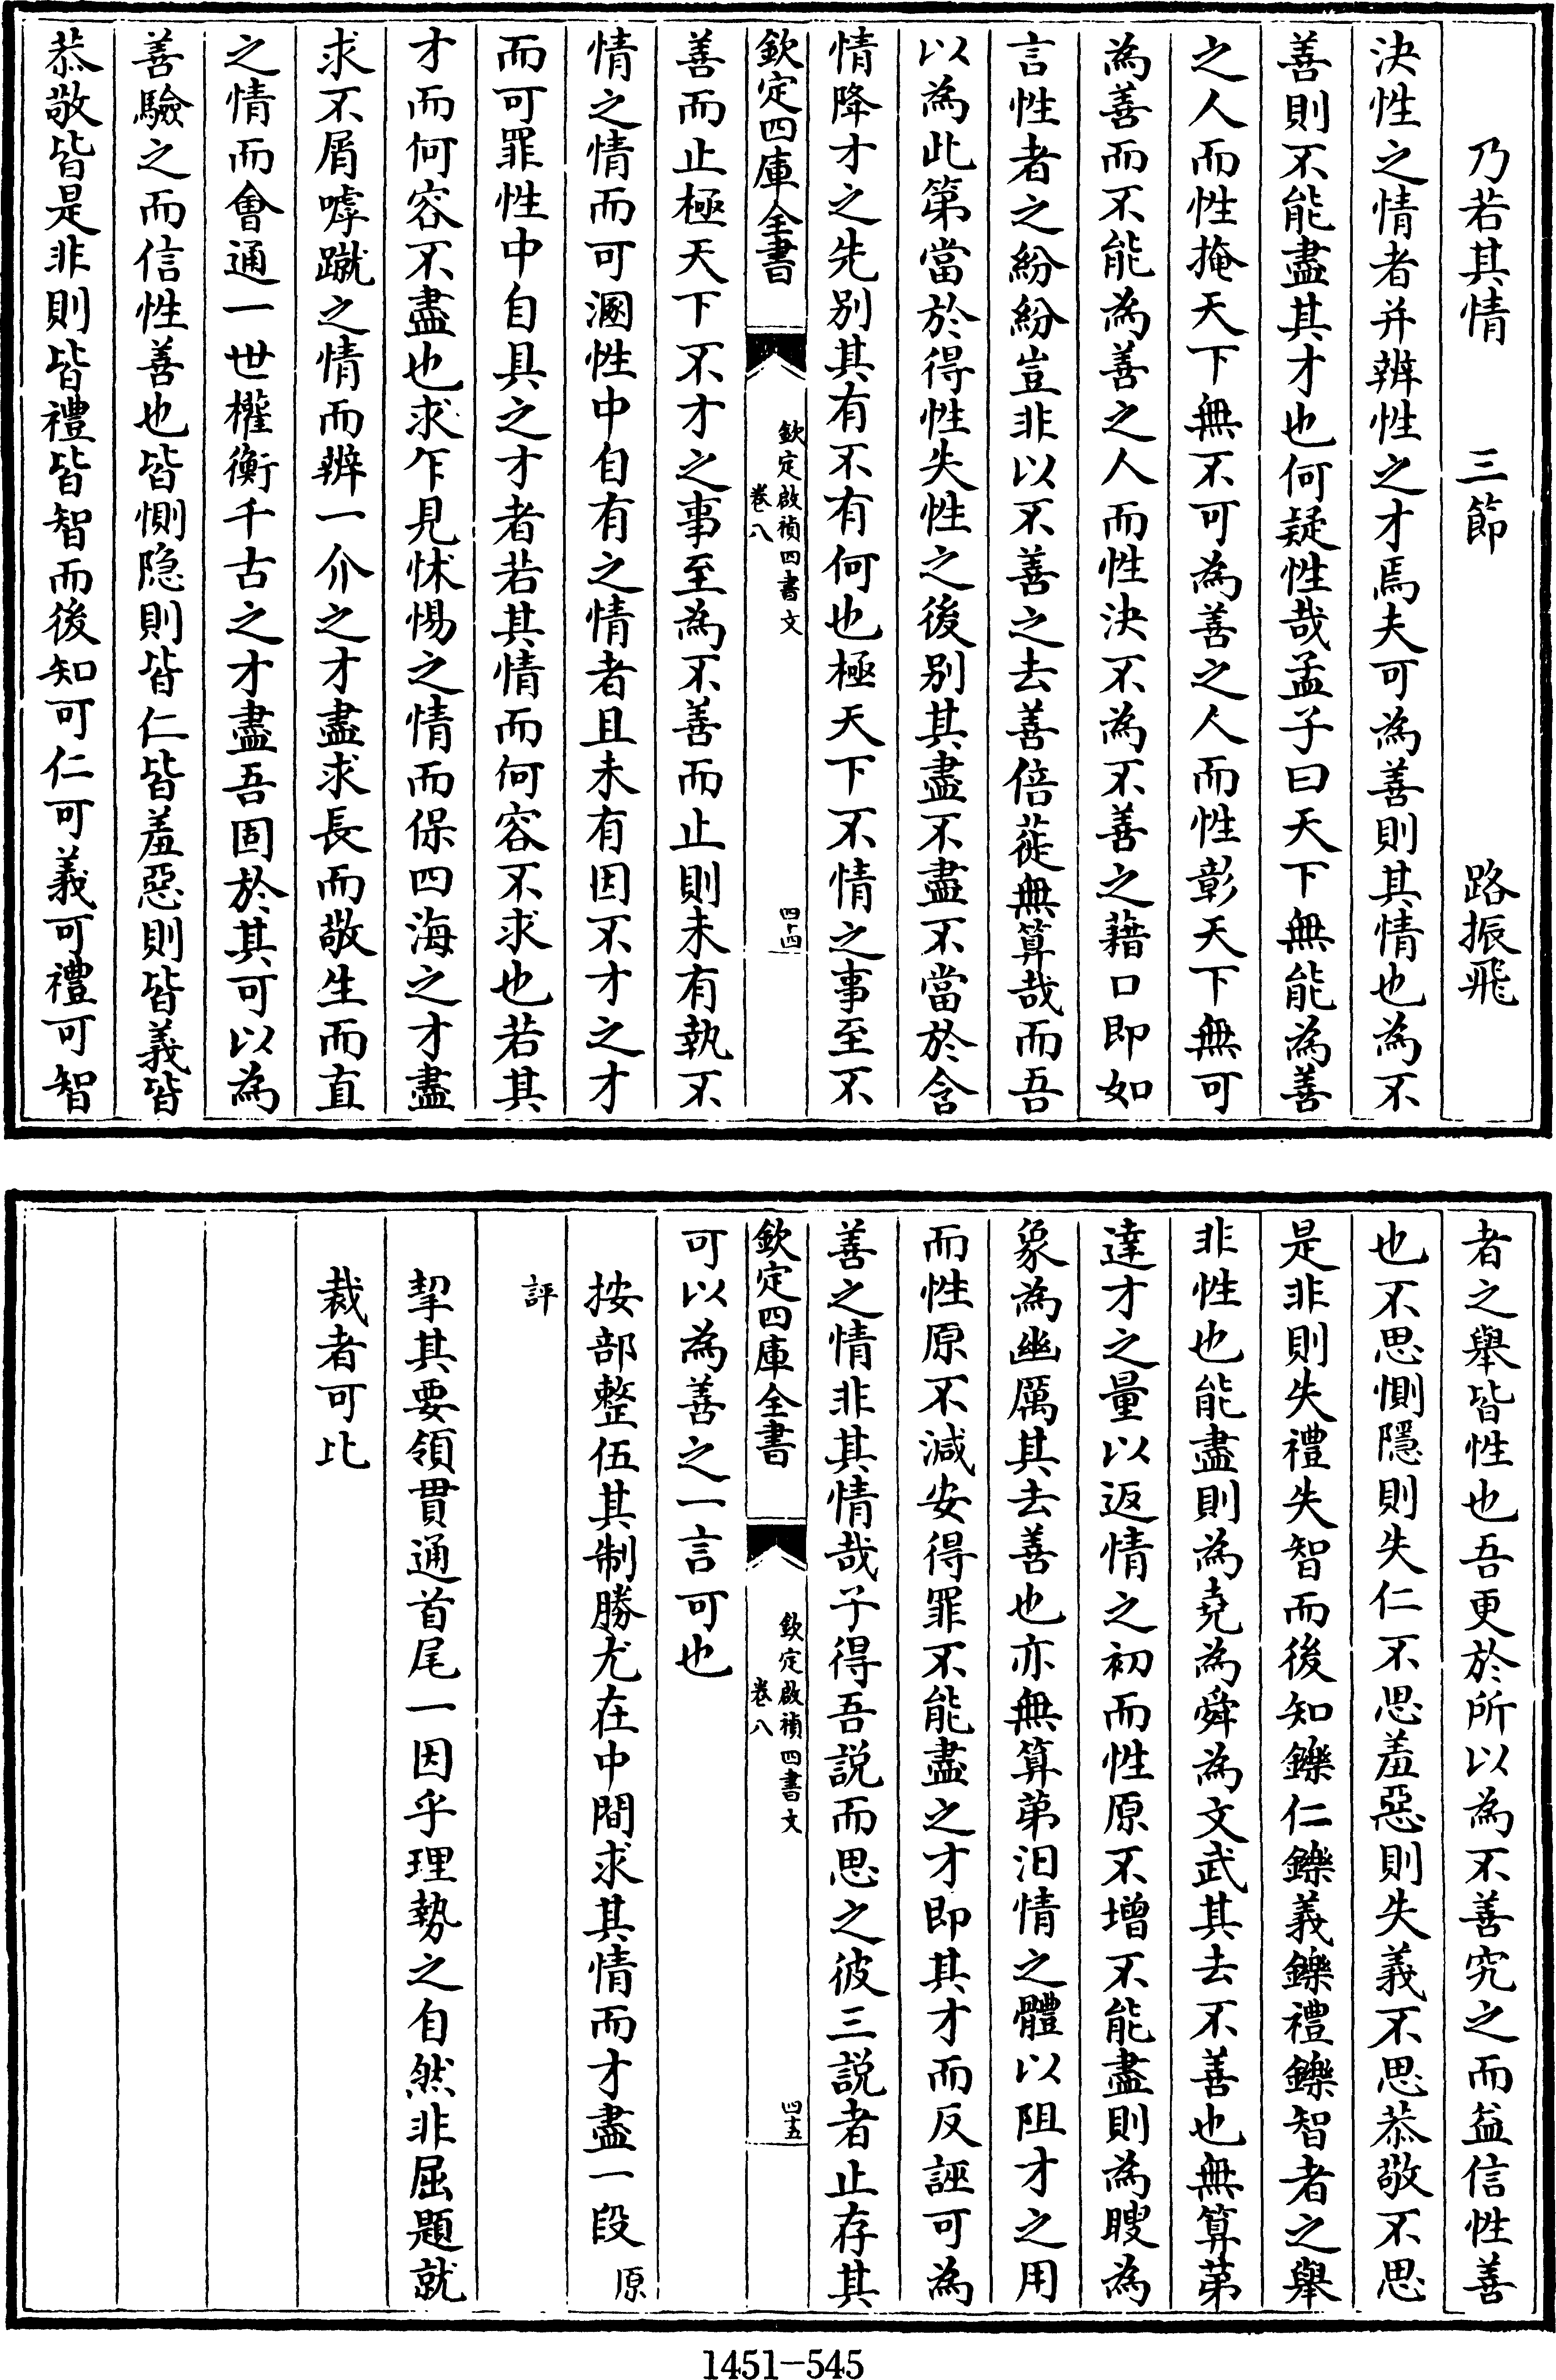 乃若其情　三節　路振飛
決性之情者并辨性之才焉夫可為善則其情也為不
善則不能盡其才也何疑性哉孟子曰天下無能為善
之人而性掩天下無不可為善之人而性彰天下無可
為善而不能為善之人而性決不為不善之藉口即如
言性者之紛紛豈非以不善之去善倍蓰無算哉而吾
以為此第當於得性失性之後别其盡不盡不當於含
情降才之先别其有不有何也極天下不情之事至不
欽定四庫全書
欽定啟禎四書文
卷八
四十四
善而止極天下不才之事至為不善而止則未有執不
情之情而可溷性中自有之情者且未有因不才之才
而可罪性中自具之才者若其情而何容不求也若其
才而何容不盡也求乍見怵惕之情而保四海之才盡
求不屑嘑蹴之情而辨一介之才盡求長而敬生而直
之情而會通一世權衡千古之才盡吾固於其可以為
善驗之而信性善也皆惻隐則皆仁皆羞惡則皆義皆
恭敬皆是非則皆禮皆智而後知可仁可義可禮可智
者之舉皆性也吾更於所以為不善究之而益信性善
也不思惻隱則失仁不思羞惡則失義不思恭敬不思
是非則失禮失智而後知鑠仁鑠義鑠禮鑠智者之舉
非性也能盡則為堯為舜為文武其去不善也無算第
達才之量以返情之初而性原不增不能盡則為瞍為
象為幽厲其去善也亦無算第汨情之體以阻才之用
而性原不減安得罪不能盡之才即其才而反誣可為
善之情非其情哉子得吾説而思之彼三説者止存其
欽定四庫全書
欽定啟禎四書文
卷八
四十五
可以為善之一言可也
按部整伍其制勝尤在中間求其情而才盡一段原
評
挈其要領貫通首尾一因乎理勢之自然非屈題就
裁者可比
1451-545